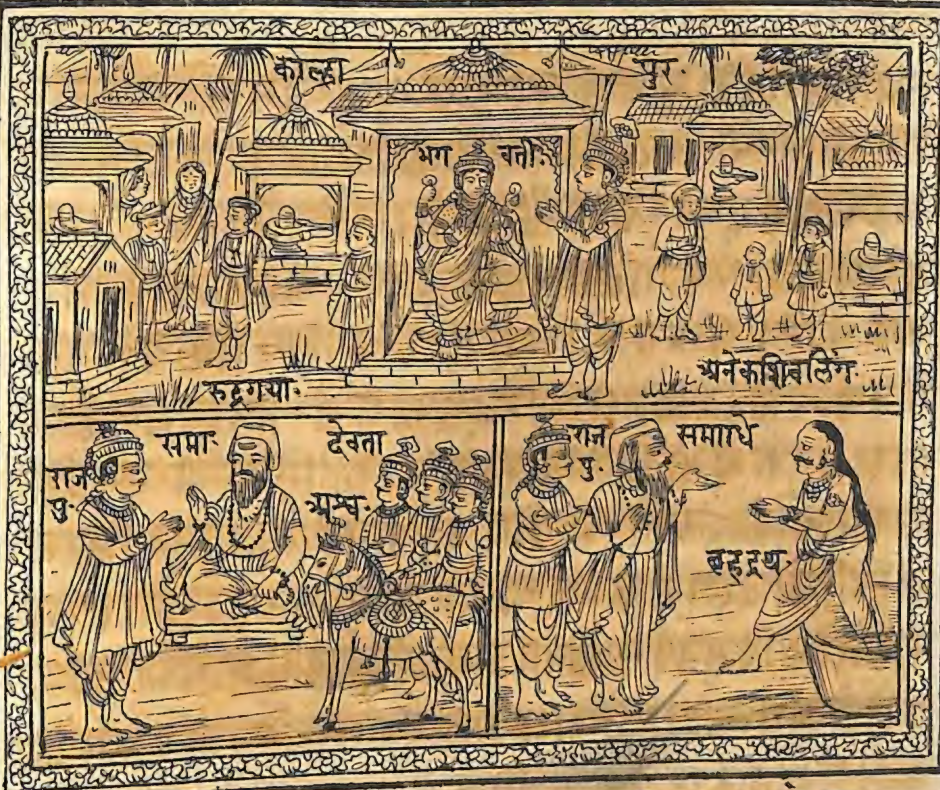 कोल्हा पुर·
भग वती·
रुद्रगया·
अनेकशिवलिंग·
समा· देवता
राज
पु·
अश्व·
राज समाधि
पु·
बहद्रथ·